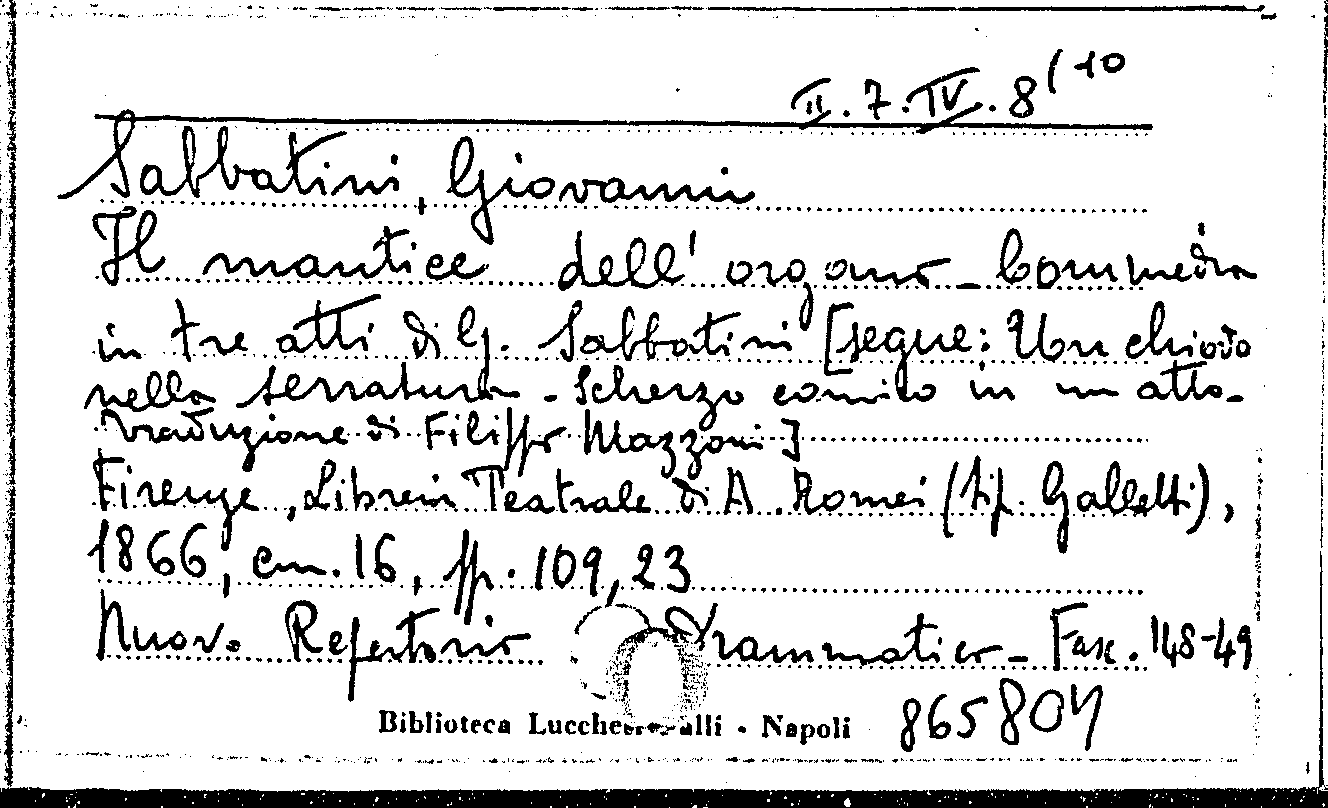 II. 7. IV. 8/10
Sabbatini, Giovanni
Il mantice dell'organo - Commedia
in tre atti di G. Sabbatini [segue: Un chiodo
nella serratura - Scherzo comico in un atto -
traduzione di Filippo Mazzoni]
Firenze, Libreria Teatrale di A. Romei (tip. Galletti),
1866, cm. 16, pp. 109, 23
Nuovo Repertorio Drammatico - Fasc. 148-49
Biblioteca Lucchesi-Palli - Napoli
865804